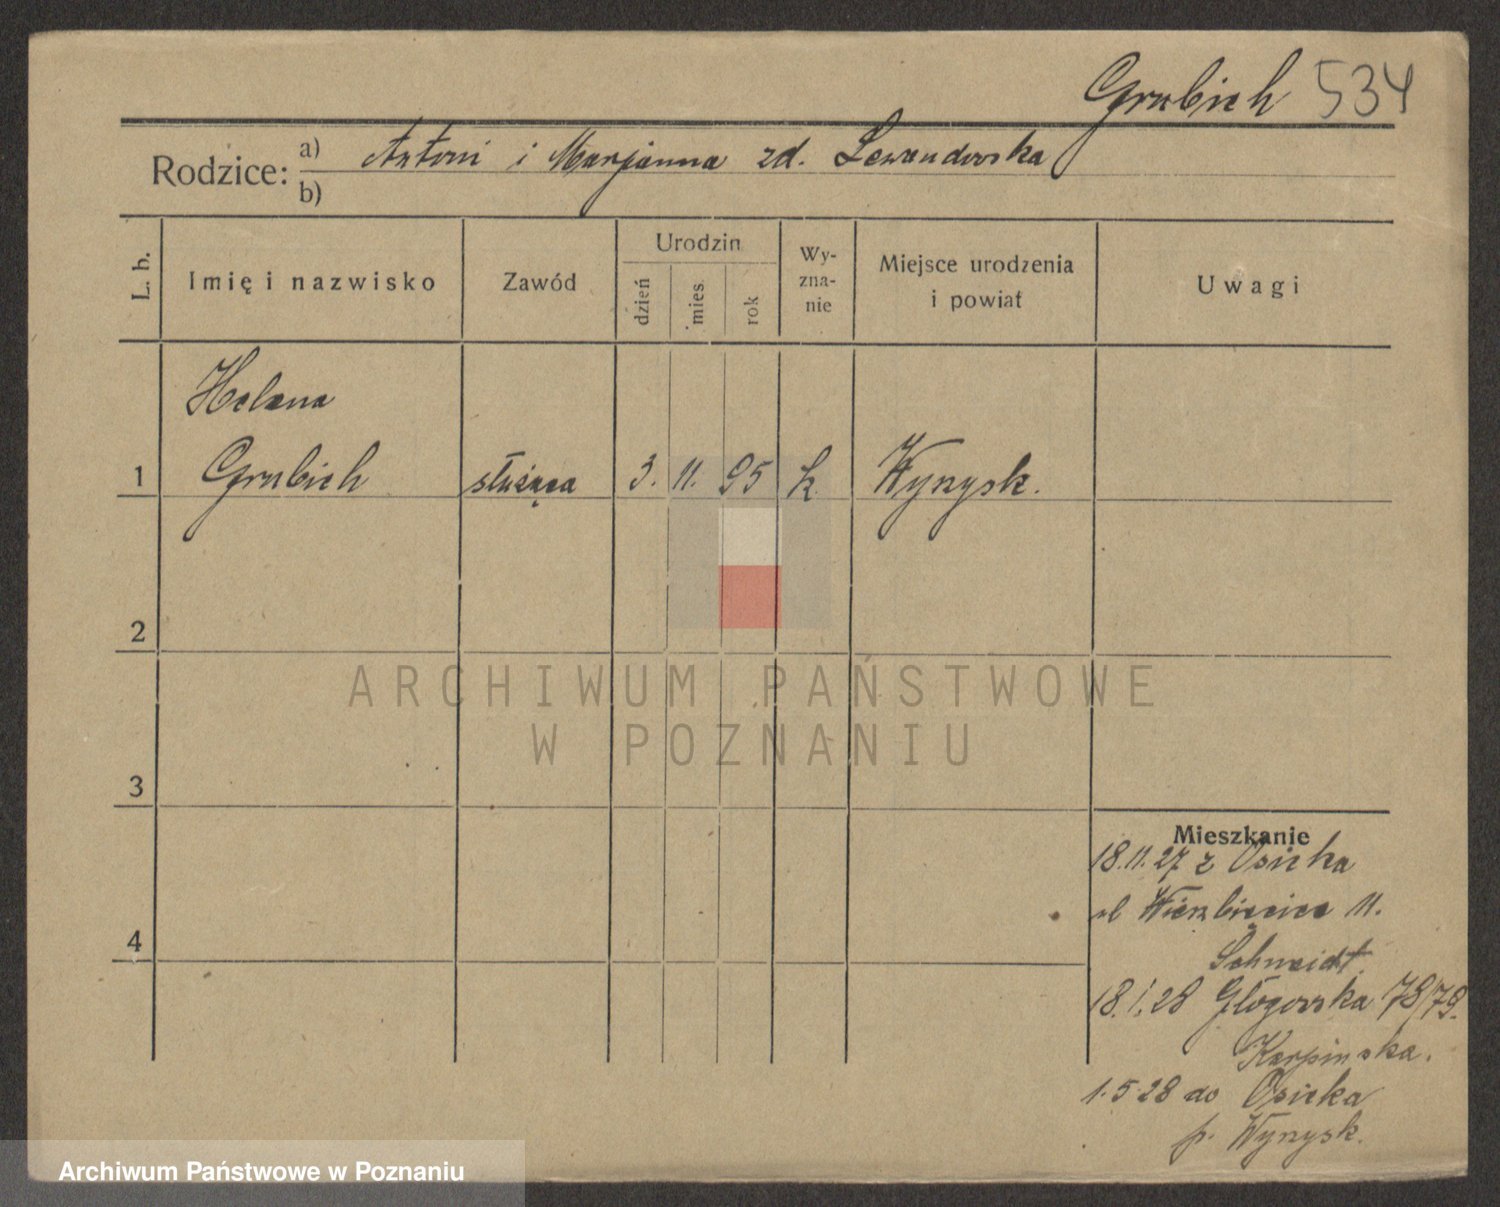 Grubich 534
Rodzice: a) Antoni i Marjanna zd. Lewandowska
b)
L. b.
Imię i nazwisko
Zawód
Urodzin
dzień
mies.
rok
Wy-
zna-
nie
Miejsce urodzenia
i powiat
Uwagi
Helena
1 Grubich służąca 3. 11. 95 k. Wyrzysk.
2
3
4
ARCHIWUM PAŃSTWOWE
W POZNANIU
Mieszkanie
18.11.27 z Osieka
ul Wierzbięcice 11.
Schmeidt.
18.1.28 Głogowska 78/79.
Karpinska.
1.5.28 do Osieka
p. Wyrzysk.
Archiwum Państwowe w Poznaniu